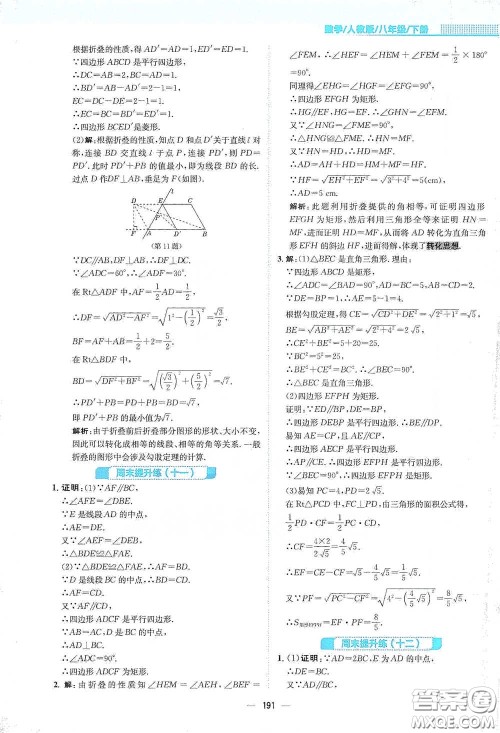 数学/人教版/八年级/下册
根据折叠的性质,得 AD'=AD=1.
∵四边形 ABCD 是平行四边形,
∴DC=AB=2.
∴BD'=AB-AD'=2-1=1.
EC=DC-DE=2-1=1.
∴BD'=CE.
∴四边形 BCED'是菱形.
(2)解:根据折叠的性质,知点 D 和点 D'关于直线 l 对
称,连接 BD 交直线 l 于点 P,连接 PD',则 PD=
PD'.此时 PD'+PB 的值最小,即为线段 BD 的长.
过点 D 作 DF⊥AB,垂足为 F(如图).
(第 11 题)
∵DC//AB,∴DF⊥DC.
∵∠ADC=60°,
在 Rt△ADF 中,AF=1/2,
∴DF=√(AD²-AF²)=√(1²-(1/2)²)=√3/2.
BF=AF+AB=1/2+2=5/2.
在 Rt△BDF 中,
BD=√(DF²+BF²)=√((√3/2)²+(5/2)²)=√7.
∴PD'+PB=PD+PB=BD=√7,
即 PD'+PB 的最小值为√7.
解析:由于折叠前后折叠部分图形的形状、大小不变,
因此可以转化成相等的线段、相等的角等关系.一般
折叠的图形中会涉及勾股定理的计算.
周末提升练(十一)
1. 证明:(1)∵AF//BC,
∴∠AFE=∠DBE.
∵E 是线段 AD 的中点,
∴AE=DE.
∴△BDE≌△AFE.
(2)∵△BDE≌△AFE,
∴AF=BD.
∵D 是线段 BC 的中点,
∴BD=CD.∴AF=CD.
∵AF//CD,
∴四边形 ADCF 是平行四边形.
∵AB=AC,BD=DC,
∴AD⊥BC.
∴∠ADC=90°.
∴四边形 ADCF 为矩形.
2. 解:由折叠的性质知∠HEM=∠AEH,∠BEF=
∠FEM,∴∠HEF=∠HEM+∠FEM=1/2×180°
=90°.
同理得∠EHG=∠HGF=∠EFG=90°,
∴四边形 EFGH 为矩形.
∴HG//EF,HG=EF.
∴∠GHN=∠EFM.
又∵∠HNG=∠FME=90°,
∴△HNG≌△FME.∴HN=MF.
又∵HN=HD,∴HD=MF.
∴AD=AH+HD=HM+MF=HF.
∵HF=√(EH²+EF²)=√(3²+4²)=5(cm),
∴AD=5 cm.
解析:此题利用折叠提供的角相等,可证明四边形
EFGH 为矩形,然后利用三角形全等来证明 HN=
MF,进而证明 HD=MF,从而将 AD 转化为直角三
角形 EFH 的斜边 HF,进而得解,体现了转化思想.
3. 解:(1)△BEC 是直角三角形.理由:
∵四边形 ABCD 是矩形,
∴∠ADC=∠BAD=90°,
AD=BC=5.∴AE=5-1=4.
根据勾股定理,得 CE=√(CD²+DE²)=√(2²+1²)=√5,
BE=√(AB²+AE²)=√(2²+4²)=2√5.
∴CE²+BE²=5+20=25.
∵BC²=5²=25,
∴BE²+CE²=BC².∴∠BEC=90°.
∴△BEC 是直角三角形.
(2)四边形 EFPH 为矩形.
证明:∵DE//BP,DE=BP,
∴四边形 DEBP 是平行四边形.
∴BE//DP.
易知四边形 AECP 是平行四边形.∴AP//CE.
∴四边形 EFPH 是平行四边形.
又∵∠BEC=90°,∴四边形 EFPH 是矩形.
(3)易知∠PFC=90°.
在 Rt△PCD 中,FC⊥PD,由三角形的面积公式得,
1/2PD·CF=1/2PC·CD,
∴CF=(4×2)/(2√5)=4/5√5.
∴EF=CE-CF=√5-4/5√5=1/5√5.
又∵PF=√(PC²-CF²)=√(4²-(4/5√5)²)=8/5√5,
∴S四边形EFPH=EF·PF=8/5.
周末提升练(十二)
1. (1)证明:∵AD=2BC,E 为 AD 的中点,
∴DE=BC.
191
答案圈
MXQE.COM